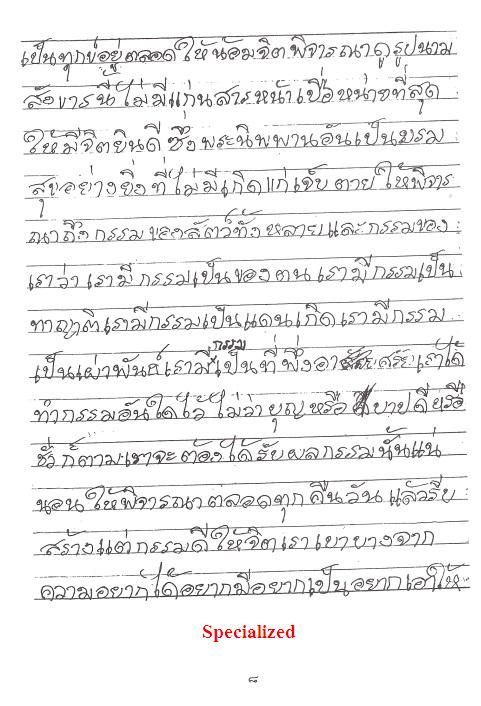 เป็นทุกข์อยู่ตลอดให้น้อมจิตพิจารณาดูรูปนาม
สังขารนี้ไม่มีแก่นสารหน้าเบื่อหน่ายที่สุด
ให้มีจิตยินดีซึ่งพระนิพพานอันเป็นบรม
สุขอย่างยิ่งที่ไม่มีเกิดแก่เจ็บตายให้พิจาร
ณาถึงกรรมของสัตว์ทั้งหลายและกรรมของ
เราว่าเรามีกรรมเป็นของตนเรามีกรรมเป็น
ทายาทเรามีกรรมเป็นแดนเกิดเรามีกรรม
เป็นเผ่าพันธ์เรามีกรรมเป็นที่พึ่งอาศัยเราได้
ทำกรรมอันใดไว้ไม่ว่าบุญหรือบาปดีหรือ
ชั่วก็ตามเราจะต้องได้รับผลกรรมนั้นแน่
นอนให้พิจารณาตลอดทุกคืนวันแล้วรีบ
สร้างแต่กรรมดีให้จิตเราเบาบางจาก
ความอยากได้อยากมีอยากเป็นอยากเอาให้
Specialized
๘